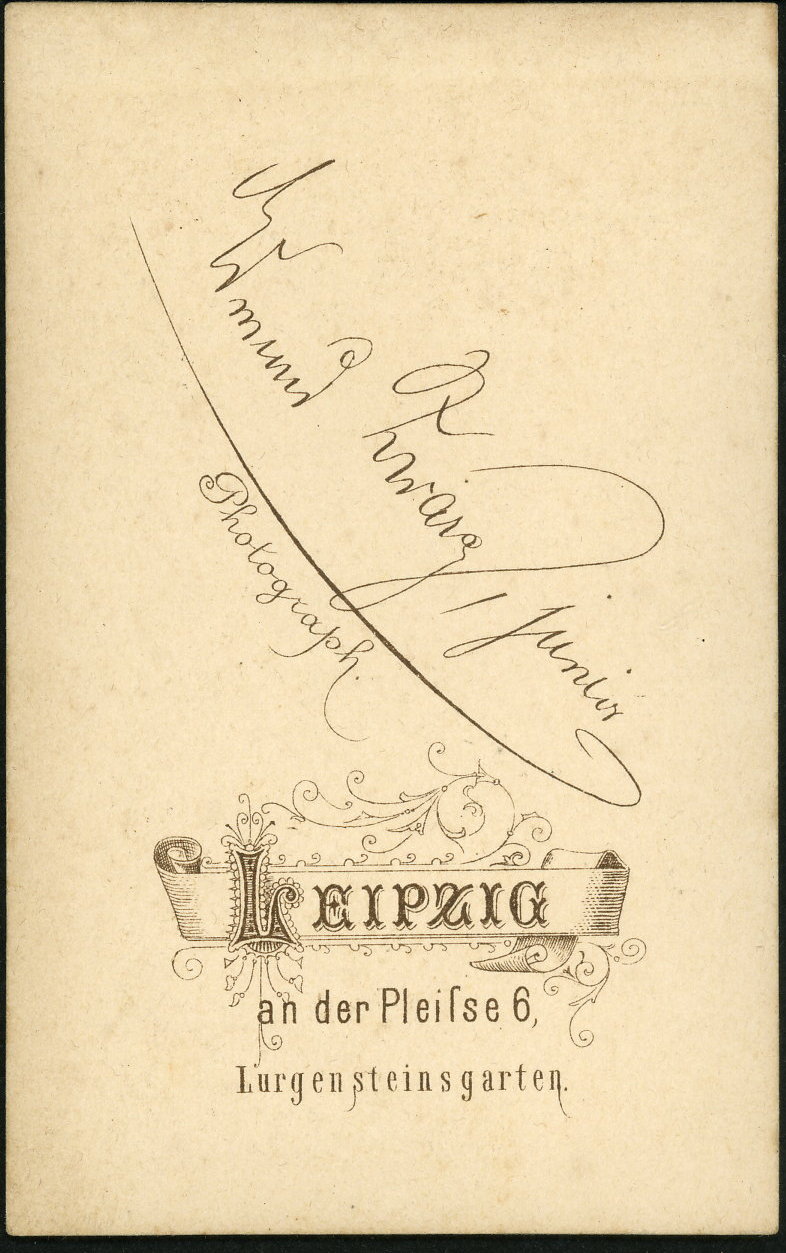 junior
Photograph.
LEIPZIG
an der Pleiſse 6,
Lurgensteinsgarten.